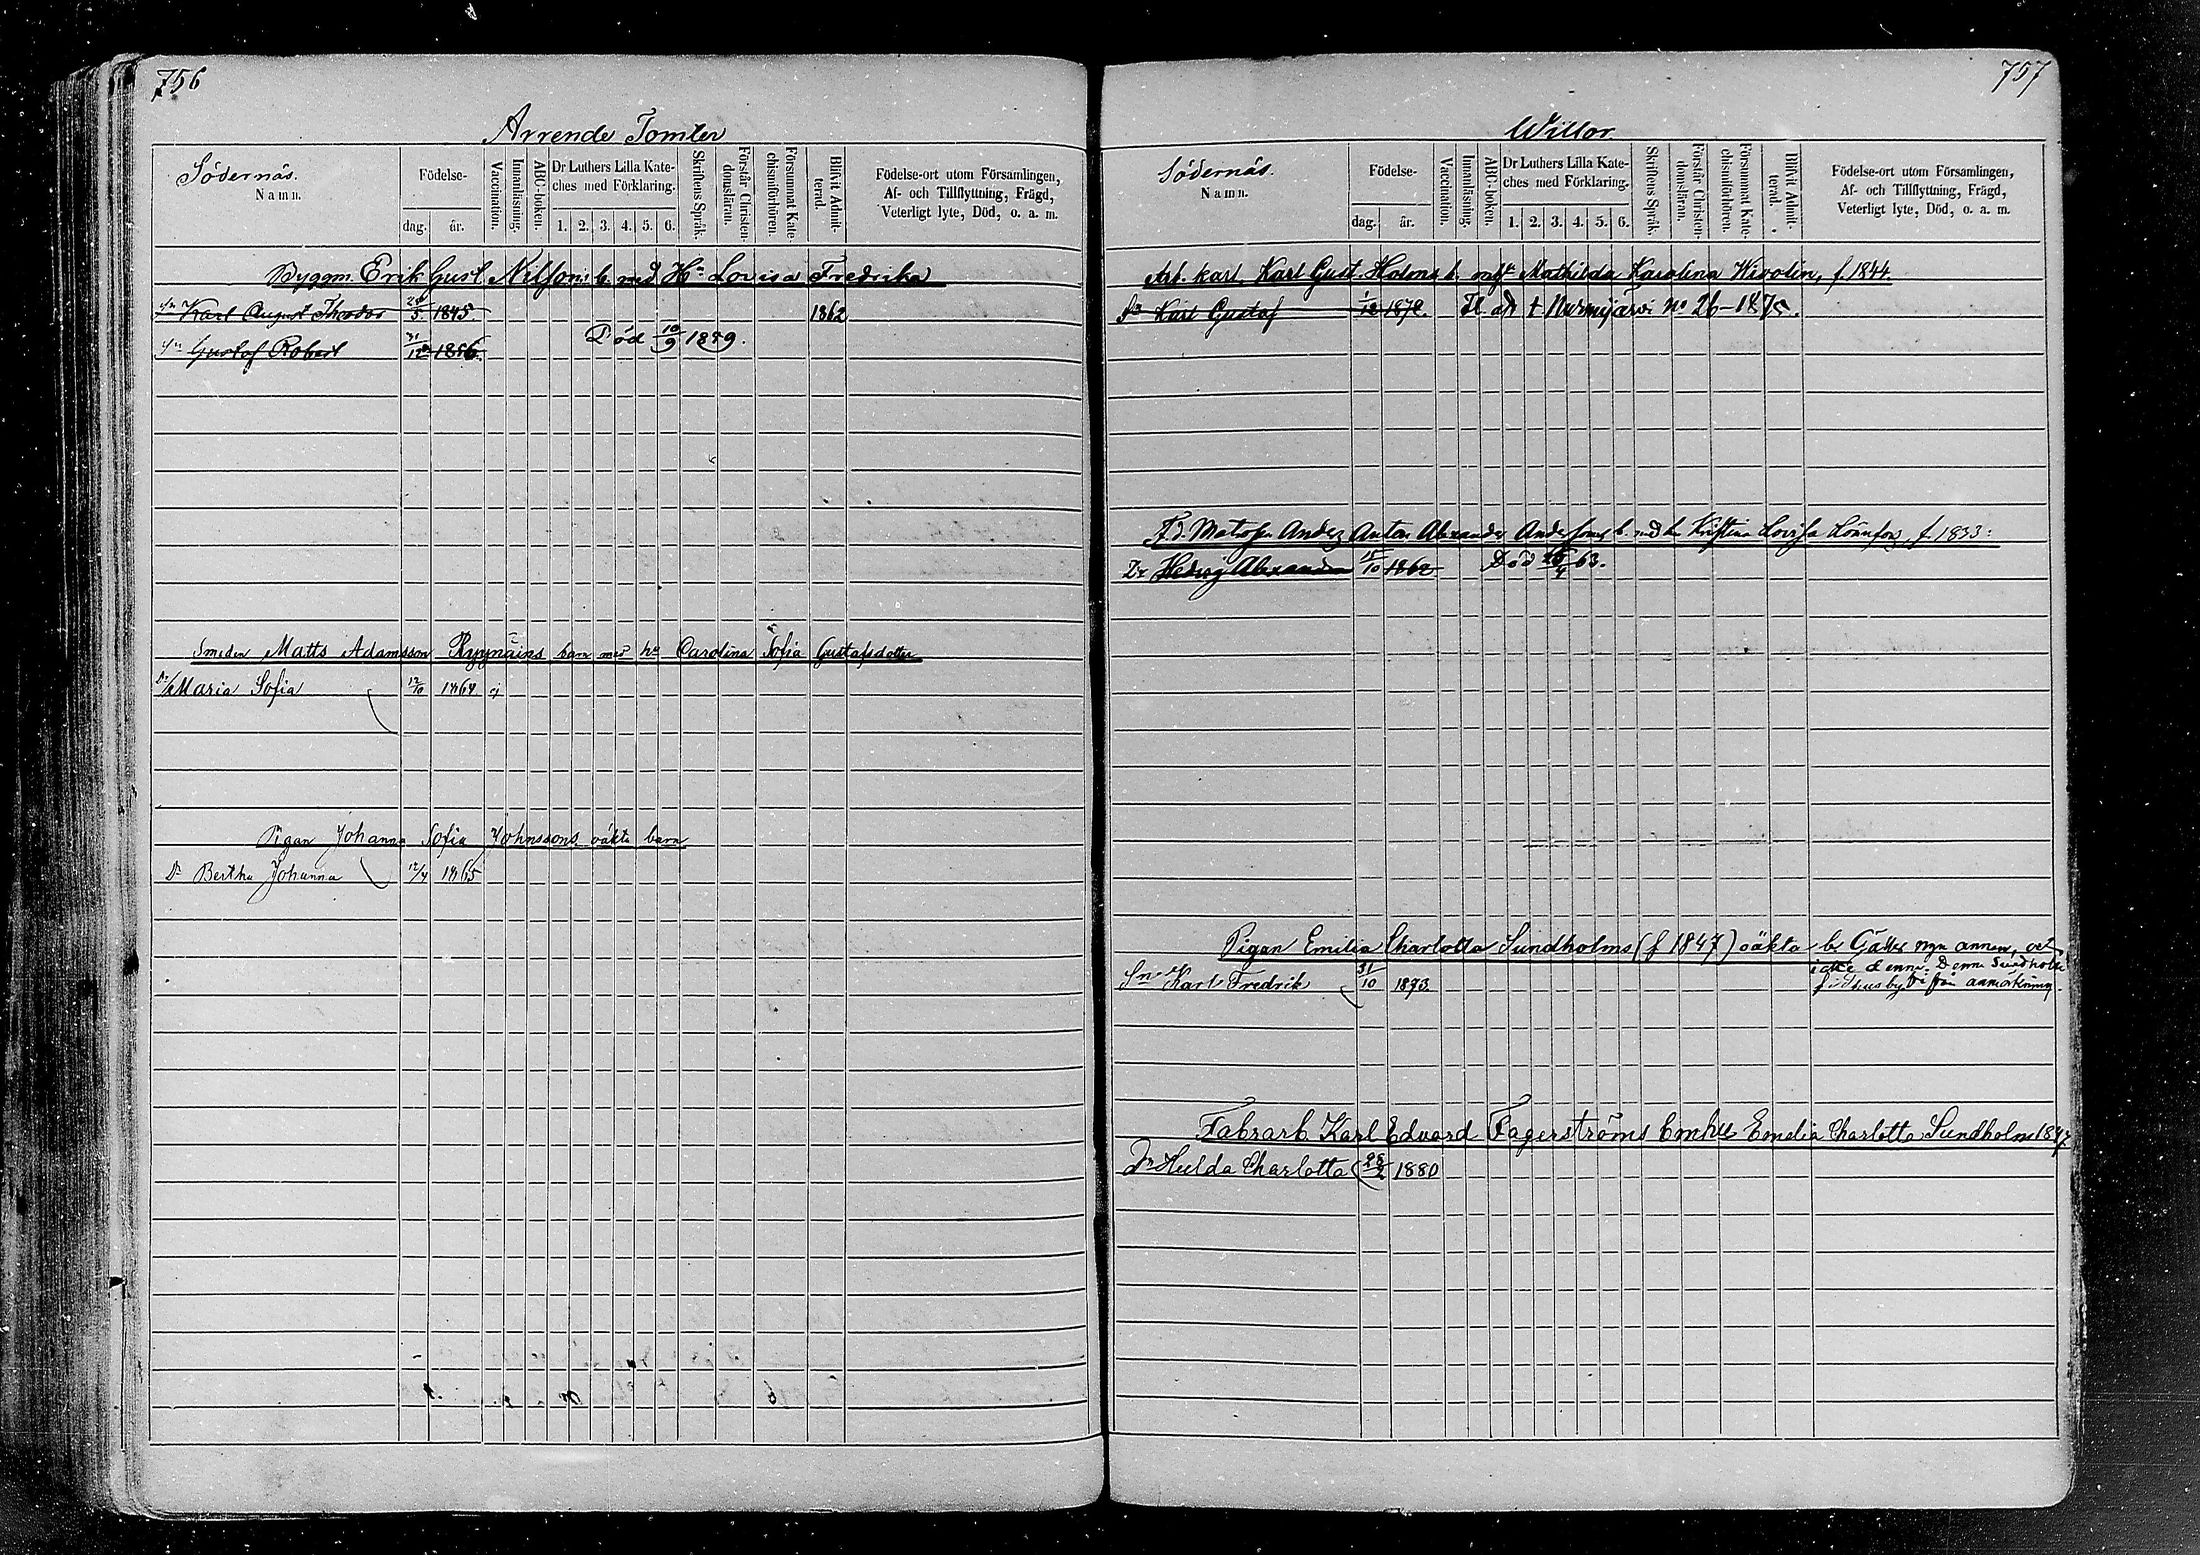 756
Arrende Tomter
Södernäs.
Namn.
Födelse-
dag. år.
Vaccination.
Innanläsning.
ABC-boken.
Dr Luthers Lilla Kate-
ches med Förklaring.
1. 2. 3. 4. 5. 6.
Skriftens Språk.
Förstår Christen-
domsläran.
Försummat Kate-
chismiförhören.
Blifvit Admit-
terad.
Födelse-ort utom Församlingen,
Af- och Tillflyttning, Frägd,
Veterligt lyte, Död, o. a. m.
Byggm. Erik Gust. Nilsons b. med Hu Lovisa Fredrika
Sn Karl August Theodor 5 1845. 1862
Sn Gustaf Robert 31/12 1856. Död 10/9 1889.
Smeden Matts Adamsson Ryynäins barn med hu Carolina Sofia Gustafsdotter
Dr Maria Sofia 12/10 1864
Pigan Johanna Sofia Johnssons oäkta barn
Dr Bertha Johanna 12/4 1865
757
Willor
Södernäs.
Namn.
Födelse-
dag. år.
Vaccination.
Innanläsning.
ABC-boken.
Dr Luthers Lilla Kate-
ches med Förklaring.
1. 2. 3. 4. 5. 6.
Skriftens Språk.
Förstår Christen-
domsläran.
Försummat Kate-
chismiförhören.
Blifvit Admit-
terad.
Födelse-ort utom Församlingen,
Af- och Tillflyttning, Frägd,
Veterligt lyte, Död, o. a. m.
Arb. karl. Karl Gust. b. Mathilda Karolina Wivolin, f. 1844
Sn Karl Gustaf 1/12 1872. t Nurmijärvi No 26-1875.
F.d. Anders Anton Alexander Anderssons b. med hu Kristina Lovisa f. 1833:
Dr Hedvig Alexandra 15/10 1862 Död 63.
Pigan Emilia Charlotta Sundholms (f 1847) oäkta b. Gäller annan, och
icke denna. Denna Sundholm
fri från anmärkning.
Sn Karl Fredrik 31/10 1873
Fabrarb. Karl Edvard Fagerströms b m hu Emelia Charlotta Sundholm 1847
Dr Hulda Charlotta 28/2 1880